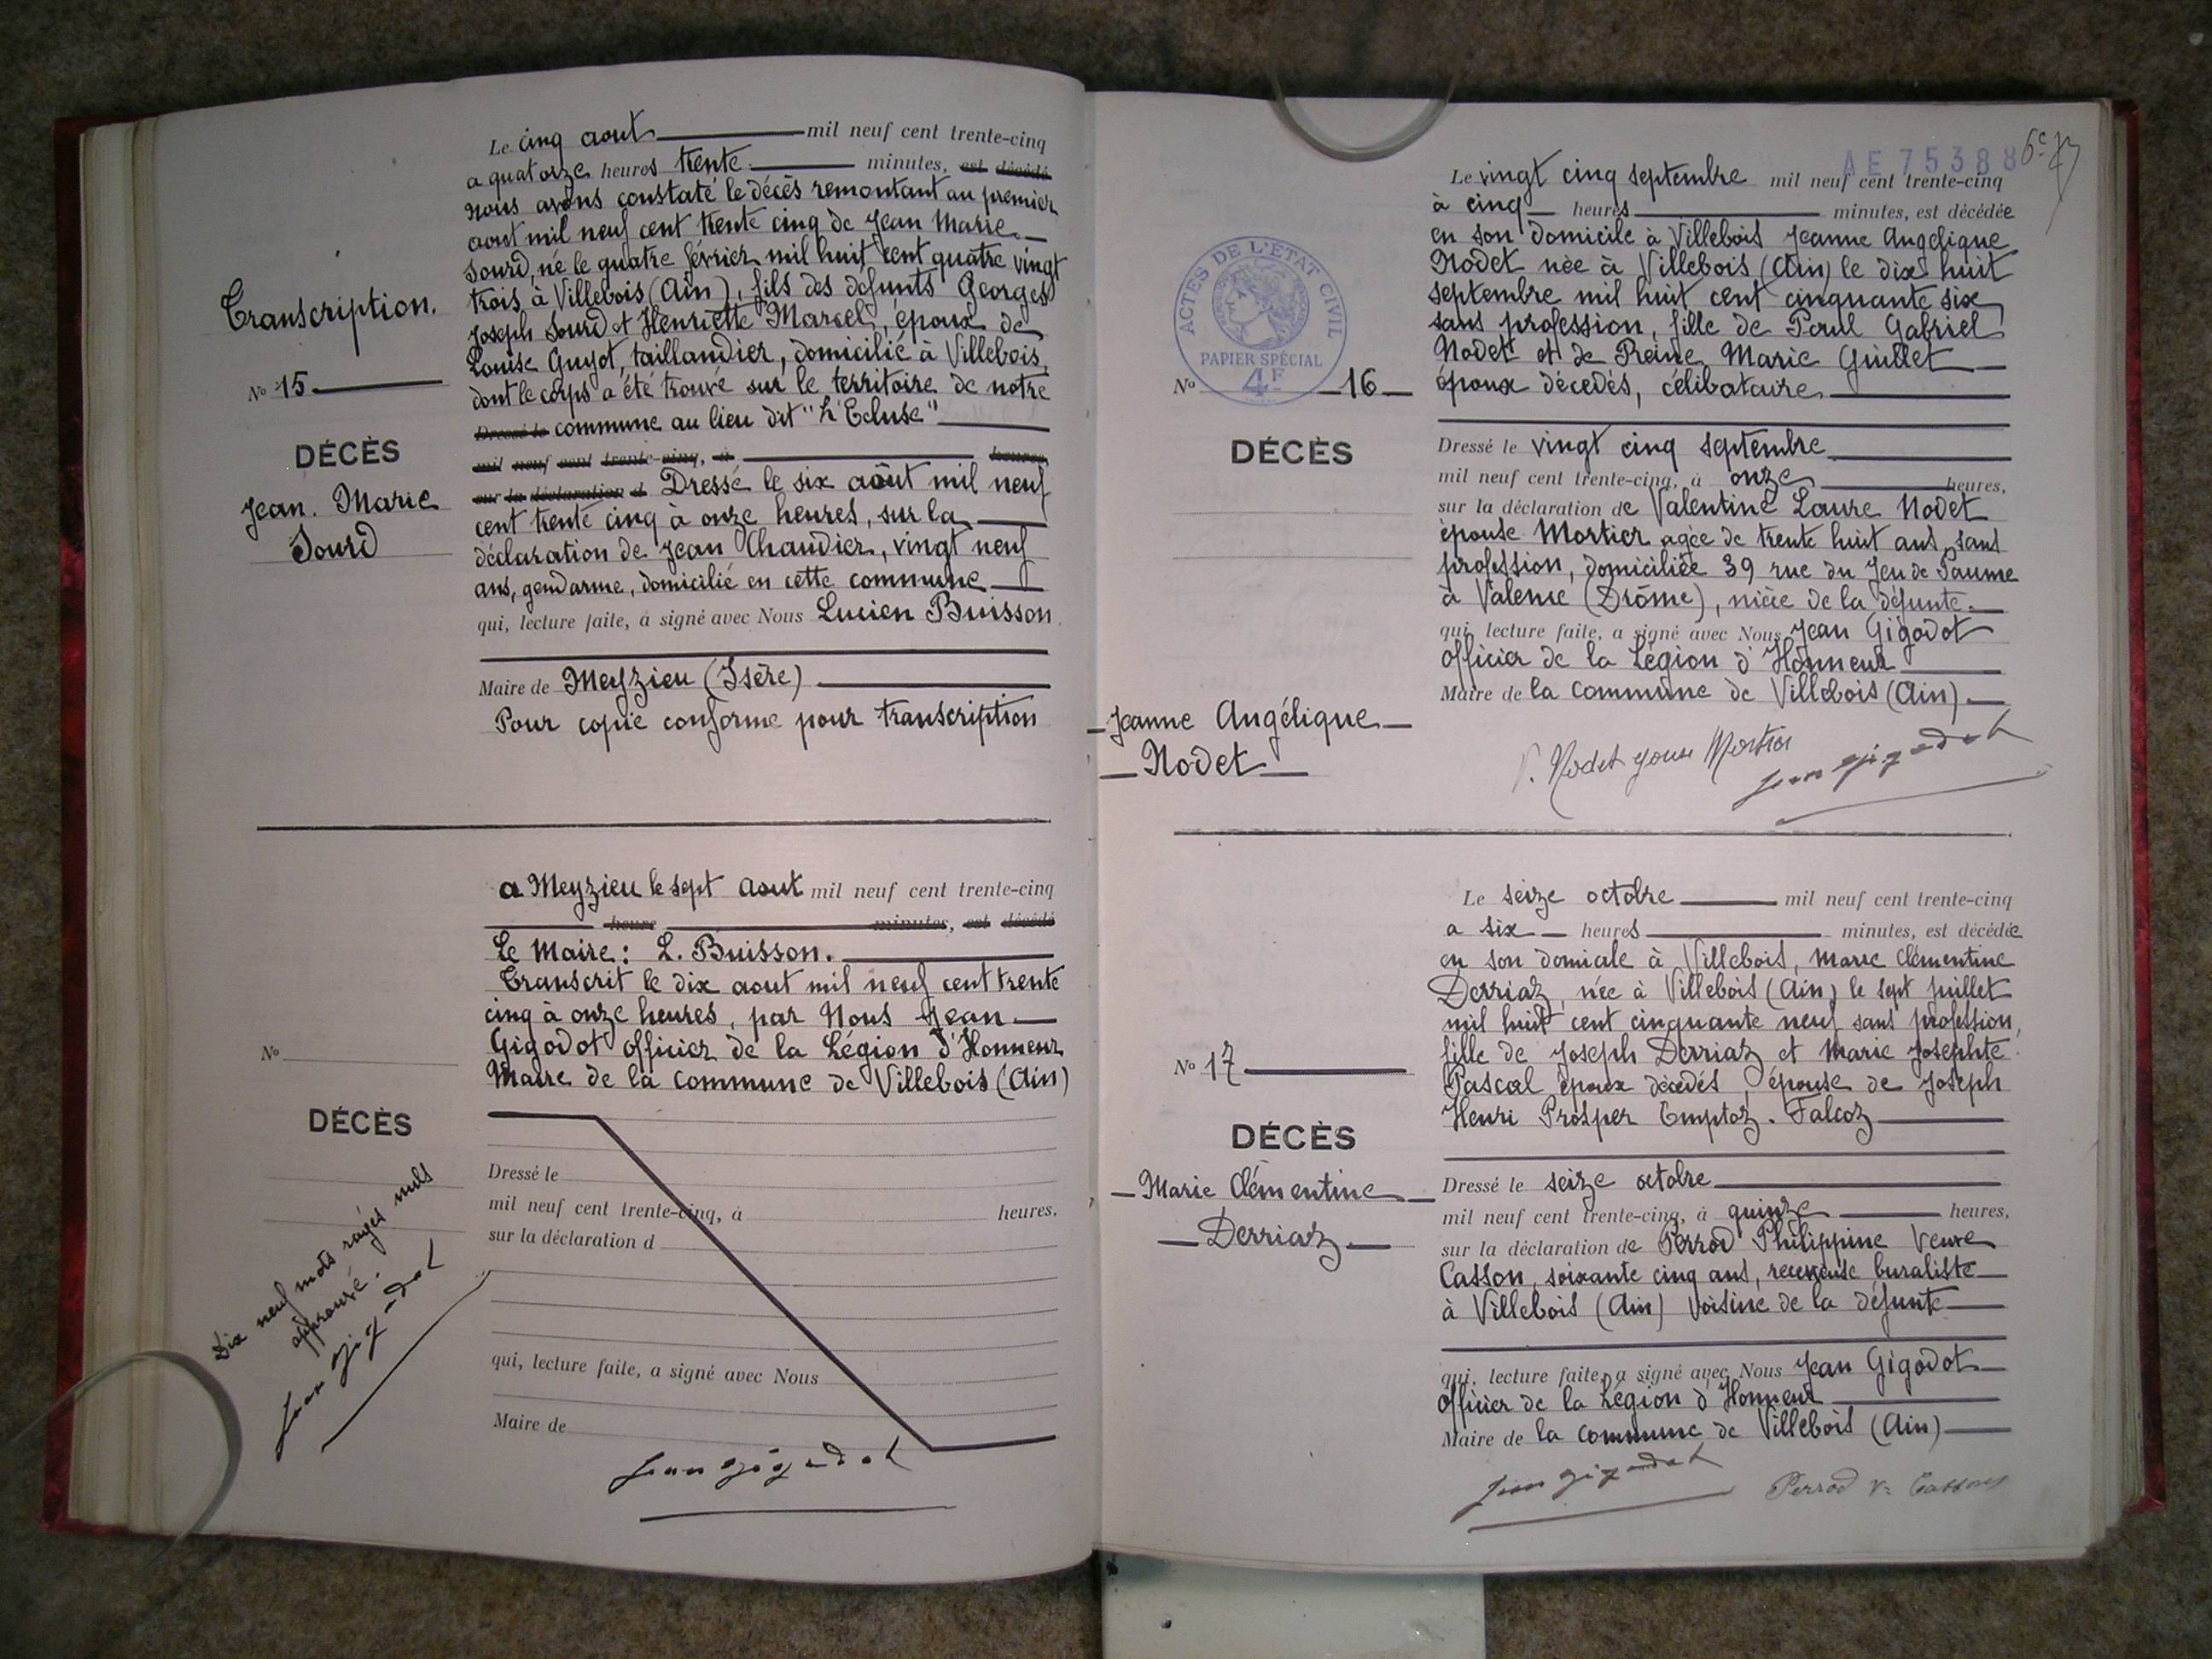 Le cinq aout mil neuf cent trente-cinq
a quatorze heures trente minutes, est décédé
Nous avons constaté le décès remontant au premier
aout mil neuf cent trente cinq de Jean Marie
Sourd, né le quatre février mil huit cent quatre vingt
trois à Villebois (Ain), fils des défunts Georges
Joseph Sourd et Henriette Marcel, époux de
Louise Guyot, taillandier, domicilié à Villebois,
dont le corps a été trouvé sur le territoire de notre
Dressé le commune au lieu dit "L'Ecluse"
mil neuf cent trente-cinq, à heures,
sur la déclaration d Dressé le six août mil neuf
cent trente cinq à onze heures, sur la
déclaration de Jean Chaudier, vingt neuf
ans, gendarme, domicilié en cette commune
qui, lecture faite, a signé avec Nous Lucien Buisson
Maire de Meyzieu (Isère)
Pour copie conforme pour transcription
Transcription.
No 15
DÉCÈS
Jean. Marie
Sourd
a Meyzieu le sept Aout mil neuf cent trente-cinq
heure minutes, est décédé
Le Maire: L. Buisson.
Transcrit le dix aout mil neuf cent trente
cinq à onze heures, par Nous Jean
Gigodot officier de la Légion d'Honneur
Maire de la commune de Villebois (Ain)
No
DÉCÈS
Dressé le
mil neuf cent trente-cinq, à heures.
sur la déclaration d
qui, lecture faite, a signé avec Nous
Maire de
Dix neuf mots rayés nuls
approuvé.
Jean Gigodot
Jean Gigodot
AE 75388
Le vingt cinq septembre mil neuf cent trente-cinq
à cinq heures minutes, est décédée
en son domicile à Villebois Jeanne Angélique
Nodet née à Villebois (Ain) le dix huit
septembre mil huit cent cinquante six
sans profession, fille de Paul Gabriel
Nodet et de Reine Marie Guillet
époux décedés, célibataire
ACTES DE L'ÉTAT CIVIL
PAPIER SPÉCIAL
4F
No 16
DÉCÈS
Jeanne Angélique
Nodet
Dressé le vingt cinq septembre
mil neuf cent trente-cinq, à onze heures,
sur la déclaration de Valentine Laure Nodet
épouse Mortier agée de trente huit ans, sans
profession, domiciliée 39 rue du Jeu de Paume
à Valence (Drôme), nièce de la défunte.
qui, lecture faite, a signé avec Nous Jean Gigodot
officier de la Légion d'Honneur
Maire de la commune de Villebois (Ain)
V. Nodet épouse Mortier
Jean Gigodot
Le seize octobre mil neuf cent trente-cinq
a six heures minutes, est décédée
en son domicile à Villebois, Marie Clémentine
Derriaz, née à Villebois (Ain) le sept juillet
mil huit cent cinquante neuf sans profession,
fille de Joseph Derriaz et Marie Josephte
Pascal époux décédés, épouse de Joseph
Henri Prosper Emptoz. Falcoz
No 17
DÉCÈS
Marie Clémentine
Derriaz
Dressé le seize octobre
mil neuf cent trente-cinq, à quinze heures,
sur la déclaration de Perrod Philippine Veuve
Casson, soixante cinq ans, receveuse buraliste
à Villebois (Ain) voisine de la défunte
qui, lecture faite, a signé avec Nous Jean Gigodot
officier de la Légion d'Honneur
Maire de la commune de Villebois (Ain)
Jean Gigodot
Perrod Ve Casson